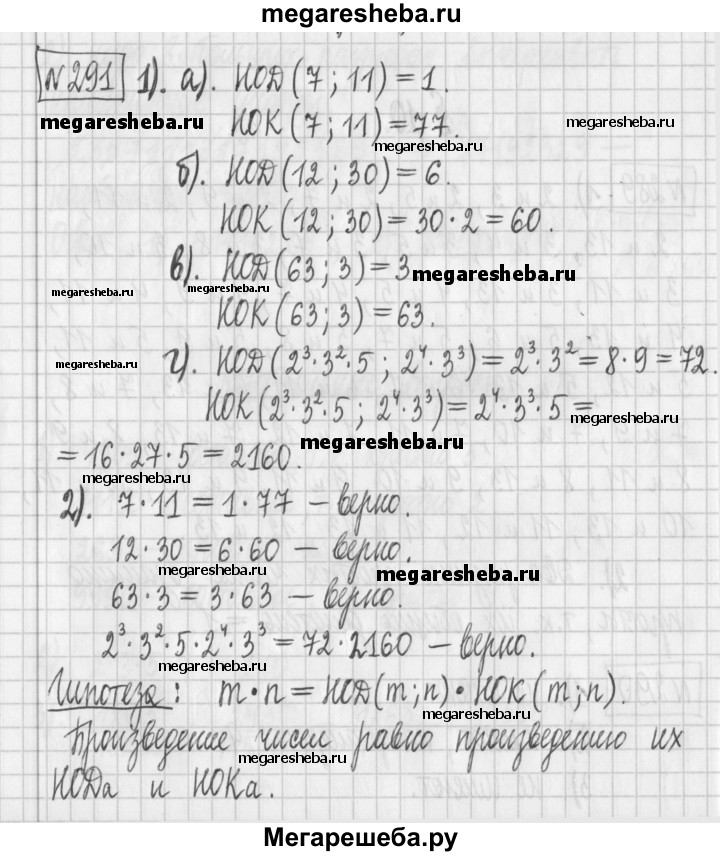 megaresheba.ru
№291 1). а). НОД(7; 11) = 1.
НОК(7; 11) = 77.
megaresheba.ru megaresheba.ru megaresheba.ru
б). НОД(12; 30) = 6.
НОК(12; 30) = 30·2 = 60.
в). НОД(63; 3) = 3 megaresheba.ru
megaresheba.ru megaresheba.ru
НОК(63; 3) = 63.
megaresheba.ru г). НОД(2³·3²·5; 2⁴·3³) = 2³·3² = 8·9 = 72.
НОК(2³·3²·5; 2⁴·3³) = 2⁴·3³·5 =
megaresheba.ru
megaresheba.ru
= 16·27·5 = 2160.
megaresheba.ru
2). 7·11 = 1·77 – верно.
12·30 = 6·60 – верно.
megaresheba.ru megaresheba.ru
63·3 = 3·63 – верно.
2³·3²·5·2⁴·3³ = 72·2160 – верно.
megaresheba.ru
Гипотеза: m·n = НОД(m; n)·НОК(m; n).
megaresheba.ru
Произведение чисел равно произведению их
megaresheba.ru
НОДа и НОКа.
Мегарешеба.ру